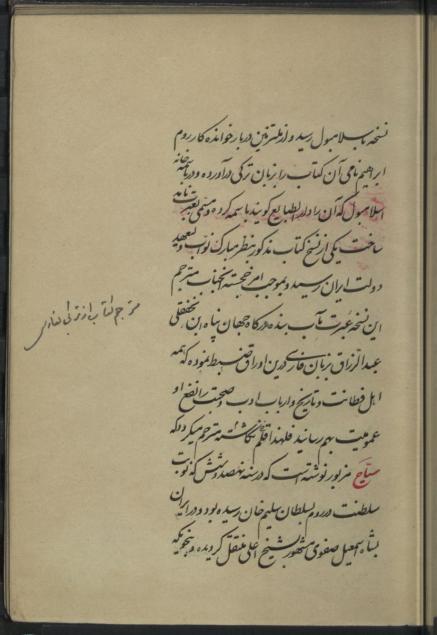 نسخه باسلامبول رسید و از ملتزمین دربار خواندکار روم
ابراهیم نامی آن کتاب را بزبان ترکی درآورده و در باسمه خانه
اسلامبول که آن را دار الطباعه گویند باسمه کرده و مسمی بعبرت نامه
ساخت یکی از نسخ کتاب مذکور بنظر مبارک نواب ولیعهد
دولت ایران رسید و بموجب امر خجسته آنجناب مترجم
این نسخه عبرت مآب بنده درگاه جهان پناه ابن نجفقلی
عبدالرزاق بزبان فارسی درین اوراق ضبط نموده که همه
اهل فطانت و تاریخ و ارباب ادب و صحبت را نفع او
عمومیت بهم رساند فلهذا قلم نگاشته مترجم میگردد که
سیاح مزبور نوشته است که در سنه نهصد و شش که نوبت
سلطنت در روم بسلطان سلیم خان رسیده بود و در ایران
بشاه اسمعیل صفوی مشهور بشیخ اغلی منتقل گردیده و بنحویکه
مترجم کتاب از ترکی بفارسی